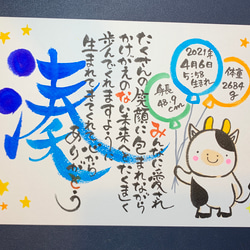 湊
みんなに愛され
たくさんの笑顔に包まれながら
かけがえのない未来へまっすぐ
歩んでくれますように
生まれてきてくれて心から
ありがとう
2021年
4月6日
5:58
生まれ
体重
2684g
身長
48.9cm